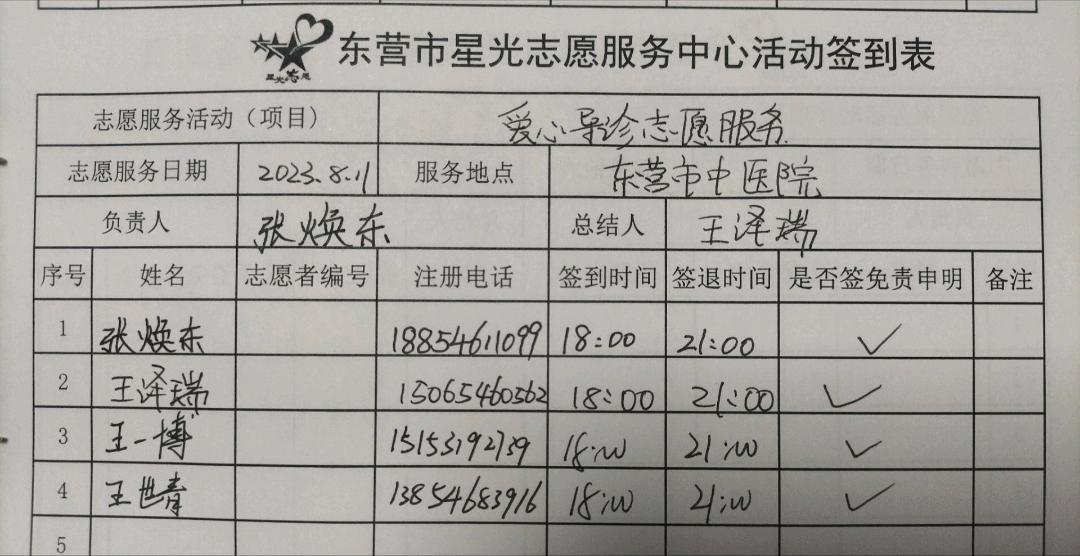 星光志愿
东营市星光志愿服务中心活动签到表
志愿服务活动（项目） 爱心导诊志愿服务
志愿服务日期 2023.8.11 服务地点 东营市中医院
负责人 张焕东 总结人 王泽瑞
序号 姓名 志愿者编号 注册电话 签到时间 签退时间 是否签免责申明 备注
1 张焕东 18854611099 18:00 21:00 ✓
2 王泽瑞 15065460562 18:00 21:00 ✓
3 王一博 15153192739 18:00 21:00 ✓
4 王世青 13854683916 18:00 21:00 ✓
5